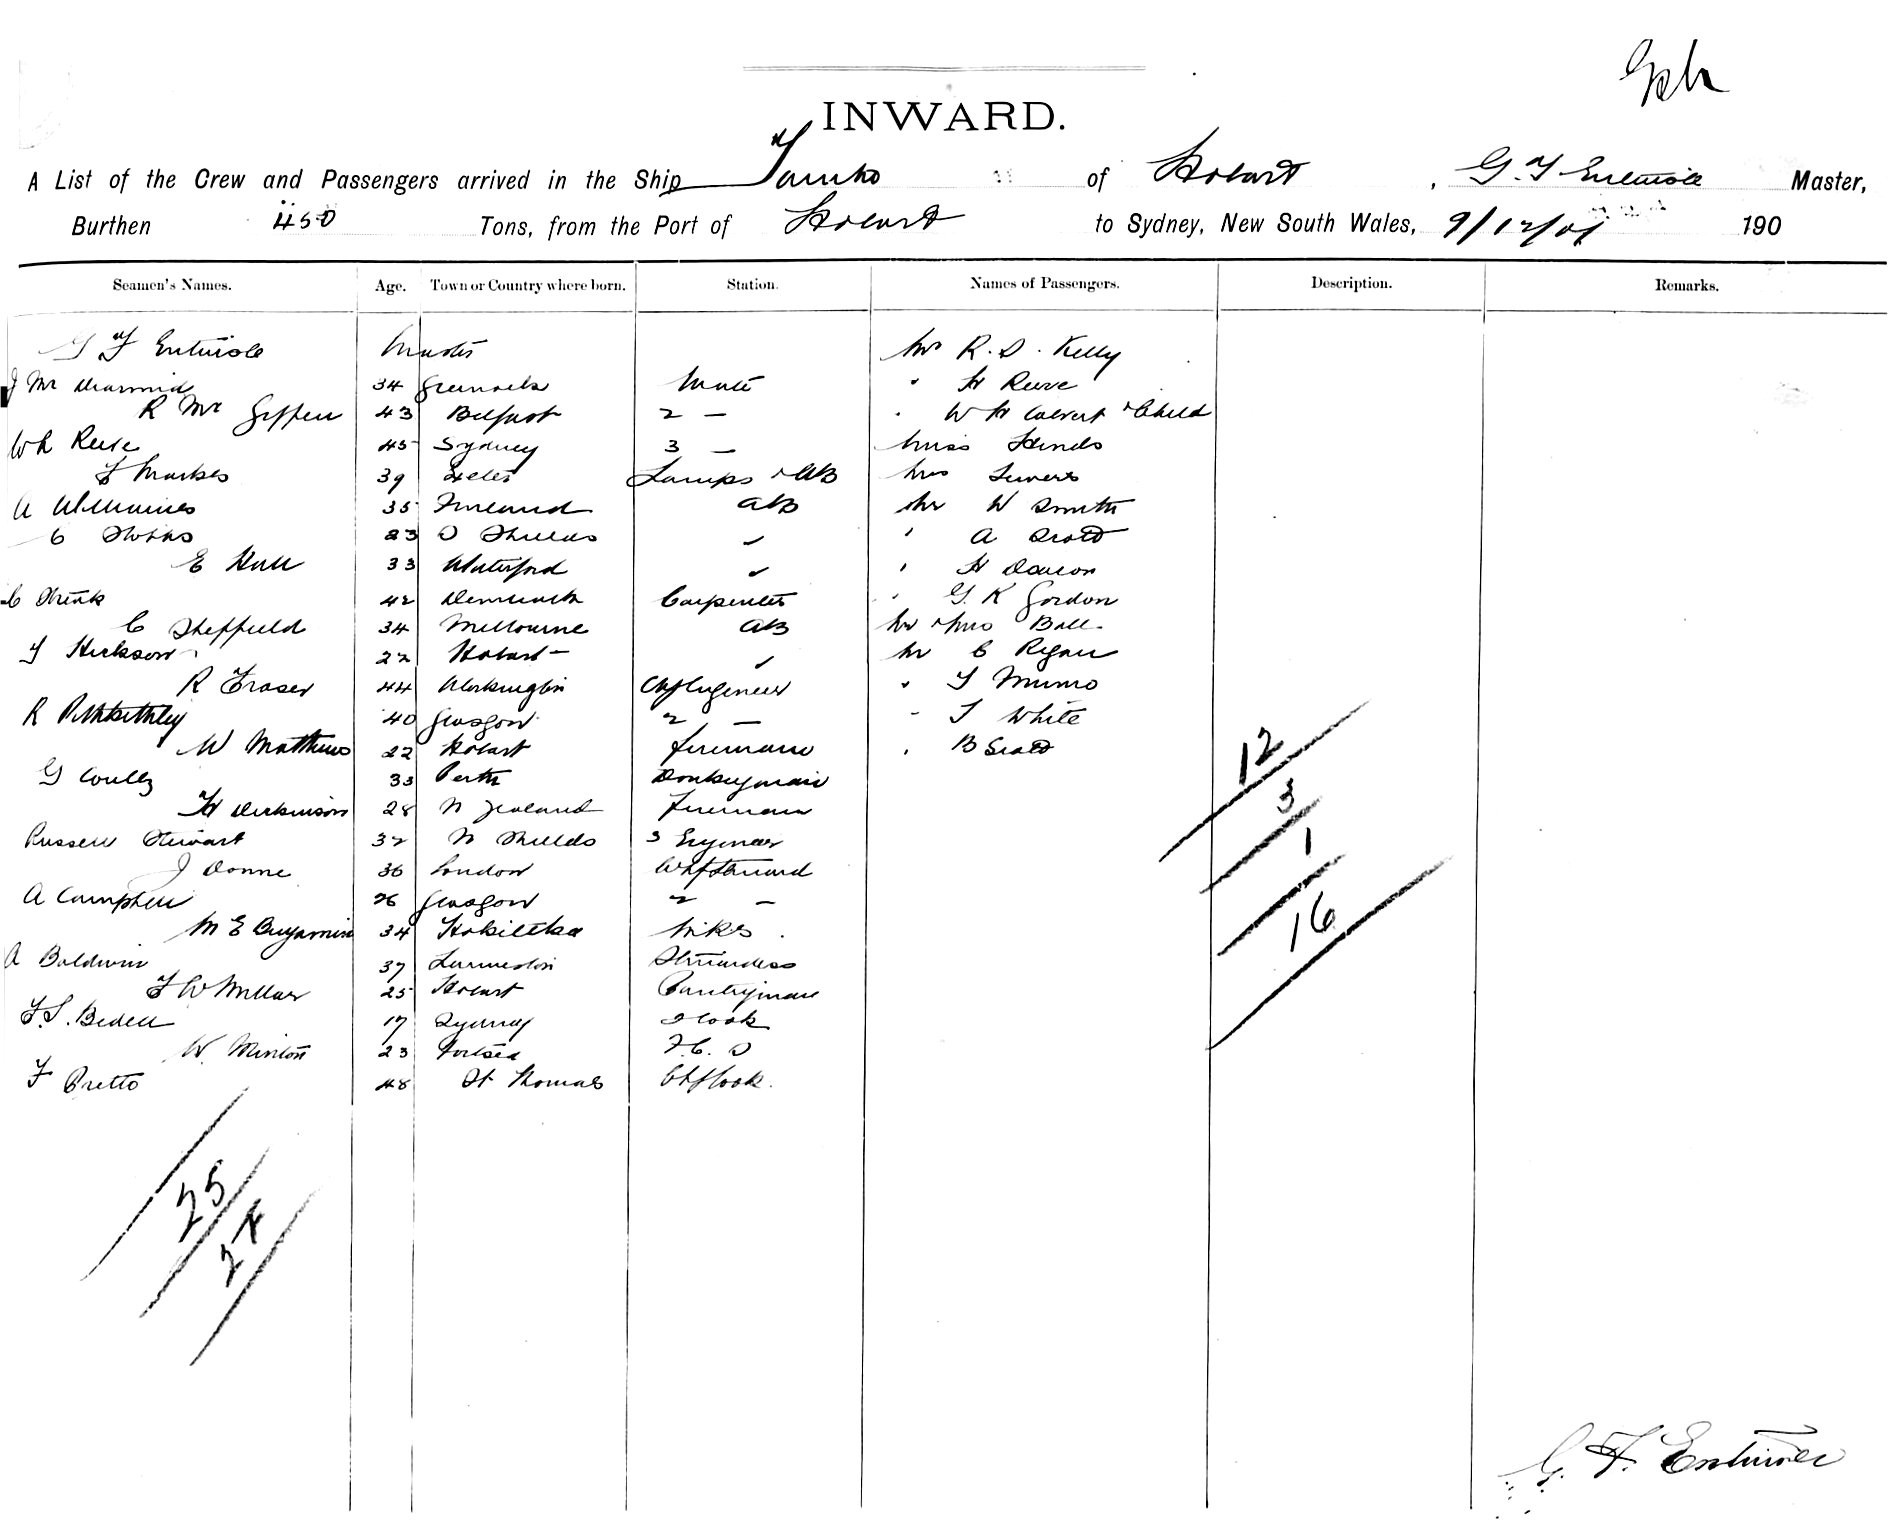 INWARD.
A List of the Crew and Passengers arrived in the Ship of Hobart, G. F Entwisle Master,
Burthen 450 Tons, from the Port of Hobart to Sydney, New South Wales, 9/12/01 190
Seamen's Names. Age. Town or Country where born. Station. Names of Passengers. Description. Remarks.
G F Entwisle Master Mr R. D. Kelly
J Mc Diarmid 34 Greenock Mate " H Reeve
R Mc Giffen 43 Belfast 2 — " W H Calvert & Child
W R 45 Sydney 3 — Miss Hinds
F Markes 39 Exeter Lamps & AB Mrs
A Williams 35 Finland AB Mr W Smith
C Hobbs 23 S Shields ✓ " A Scott
E Hall 33 Waterford ✓ " H
C 42 Denmark Carpenter " G. K Gordon
C Sheffield 34 Melbourne AB Mr & Mrs Ball
F Hickson 22 Hobart — ✓ Mr C Ryan
R Fraser 44 Workington Chf Engineer " F Munro
R 40 Glasgow 2 — " F White
W Matthews 22 Hobart Fireman " B Scott
G 33 Perth Donkeyman
H Dickinson 28 N Zealand Fireman
Russell Stewart 32 N Shields 3 Engineer
J Donne 36 London Chf Steward
A Campbell 26 Glasgow 2 —
M E Benjamin 34 Hokitika
A Baldwin 37 Launceston Stewardess
F W Millar 25 Hobart Pantryman
F. S. Bedell 17 Sydney 2 Cook
W. Minton 23 Portsea F. C. S
F Pretto 48 St Thomas Chf Cook.
12
3
1
16
25
27
G. F. Entwisle